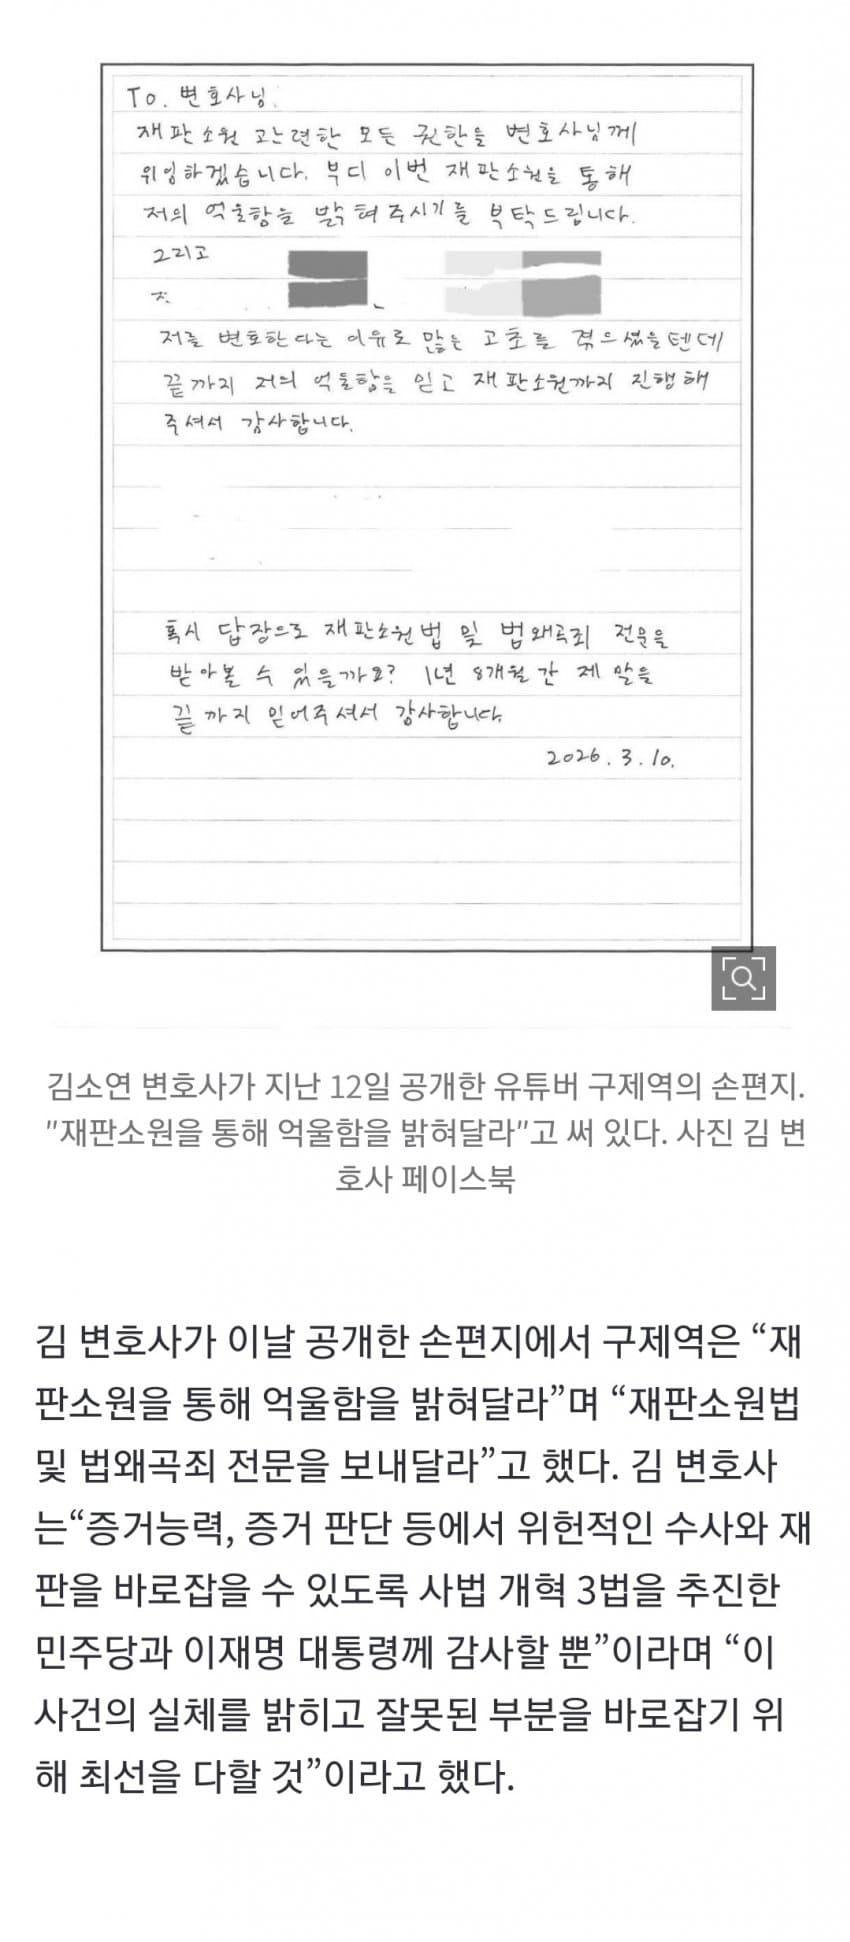 To. 변호사님.
재판소원 관련한 모든 권한을 변호사님께
위임하겠습니다. 부디 이번 재판소원을 통해
저의 억울함을 밝혀주시기를 부탁드립니다.
그리고
저를 변호한다는 이유로 많은 고초를 겪으셨을텐데
끝까지 저의 억울함을 믿고 재판소원까지 진행해
주셔서 감사합니다.
혹시 답장으로 재판소원법 및 법왜곡죄 전문을
받아볼 수 있을까요? 1년 8개월 간 제 말을
끝까지 믿어주셔서 감사합니다
2026. 3. 10.
김소연 변호사가 지난 12일 공개한 유튜버 구제역의 손편지.
"재판소원을 통해 억울함을 밝혀달라"고 써 있다. 사진 김 변
호사 페이스북
김 변호사가 이날 공개한 손편지에서 구제역은 “재
판소원을 통해 억울함을 밝혀달라”며 “재판소원법
및 법왜곡죄 전문을 보내달라”고 했다. 김 변호사
는“증거능력, 증거 판단 등에서 위헌적인 수사와 재
판을 바로잡을 수 있도록 사법 개혁 3법을 추진한
민주당과 이재명 대통령께 감사할 뿐”이라며 “이
사건의 실체를 밝히고 잘못된 부분을 바로잡기 위
해 최선을 다할 것”이라고 했다.